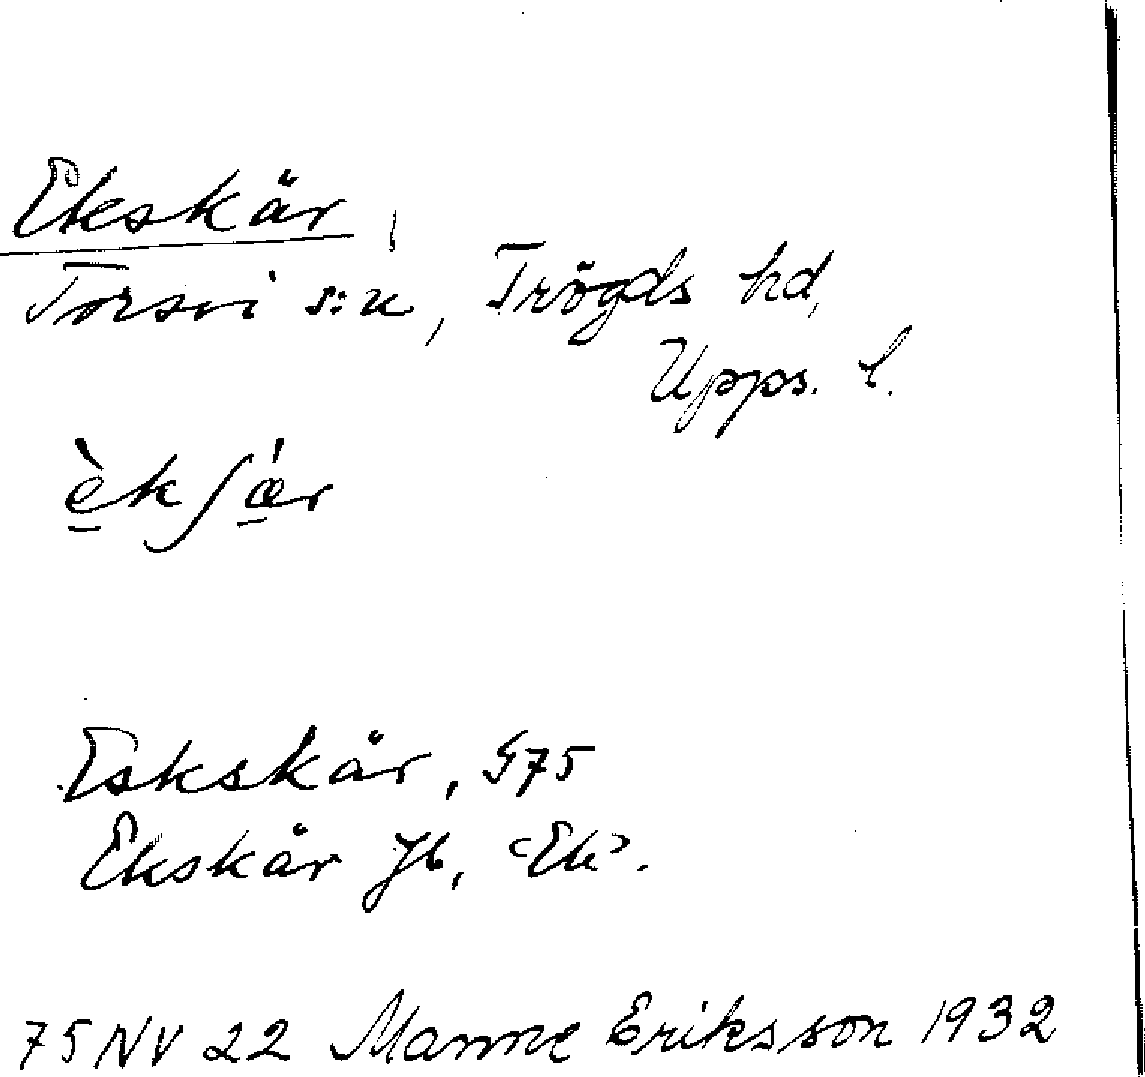 Ekskär,
Torsvi s:n, Trögds hd,
Upps. l.
è̱kʃǽ̱r
Eskskär, G75
Ekskär Jb, <Ek>.
75 NV 22 Manne Eriksson 1932